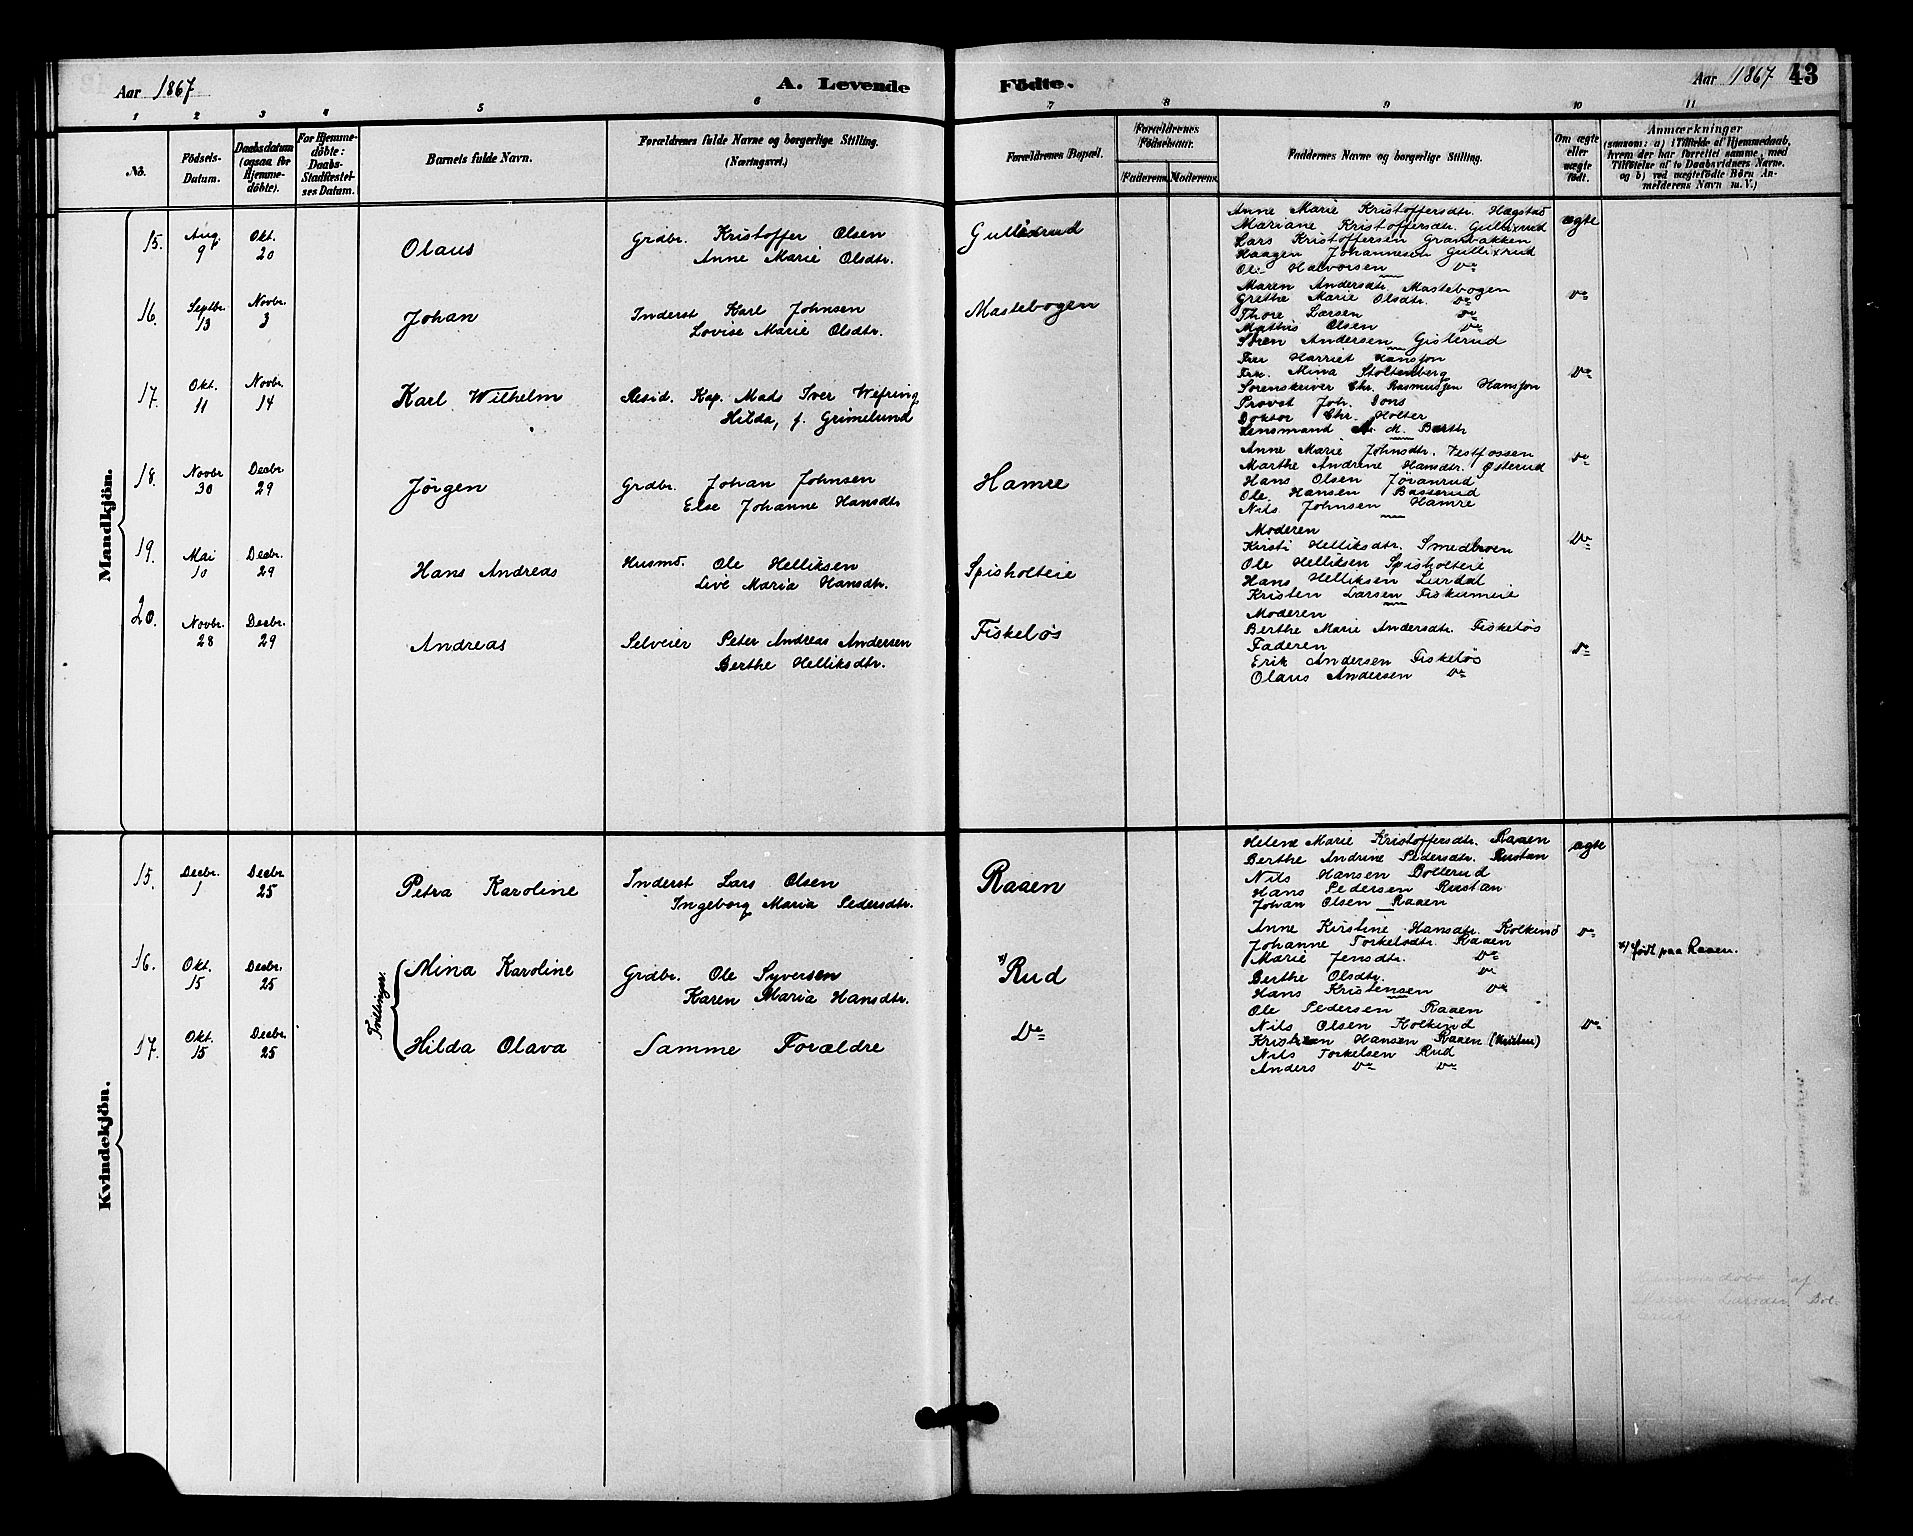 Aar 1867
A. Levende
Födte.
Aar 1867
43
1 2 3 4 5 6 7 8 9 10 11
No.
Födsels-Datum.
Daabsdatum (ogsaa for Hjemme-döbte).
For Hjemme-döbte: Daabs-Stadfæstel-ses Datum.
Barnets fulde Navn.
Forældrenes fulde Navne og borgerlige Stilling. (Næringsvei.)
Forældrenes Bopæl.
Forældrenes Födselsaar.
Faderens.
Moderens.
Faddernes Navne og borgerlige Stilling.
Om ægte eller uægte födt.
Anmærkninger
(saasom: a) i Tilfælde af Hjemmedaab, hvem der har forrettet samme, med Tilföielse af to Daabsvidners Navne, og b) ved uægtefödte Börn An-melderens Navn m. V.)
Mandkjön.
15. Aug. 9 Okt. 20 Olaus
Grdbr. Kristoffer Olsen
Anne Marie Olsdtr.
Gulliksrud
Anne Marie Kristoffersdtr. Hægstad
Mariane Kristoffersdtr. Gullixrud
Lars Kristoffersen Granbakken
Haagen Johannesen Gullixrud
Ole Halvorsen Do
ægte
16. Septbr. 13 Novbr. 3 Johan
Inderst Karl Johnsen
Lovise Marie Olsdtr.
Mastebogen
Maren Andersdtr. Mastebogen
Grethe Marie Olsdtr. Do
Thore Larsen Do
Mathis Olsen Do
Søren Andersen Gislerud
Do
17. Okt. 11 Novbr. 14 Karl Wilhelm
Resid. Kap. Mads Iver Wefring
Hilda, f. Grimelund
Fru Harriet Hansson
Frk. Mina Stoltenberg
Sorenskriver Chr. Rasmussen Hansson
Provst Joh. Dons
Doktor Chr. Holter
Lensmand A. M. Barth
Do
18. Novbr. 30 Decbr. 29 Jørgen
Grdbr. Johan Johnsen
Else Johanne Hansdtr.
Hamre
Anne Marie Johnsdtr. Vestfossen
Marthe Andrine Hansdtr. Østerud
Hans Olsen Jøranrud
Ole Hansen Basserud
Nils Johnsen Hamre
Do
19. Mai 10 Decbr. 29 Hans Andreas
Husmd. Ole Helliksen
Live Maria Hansdtr.
Spisholteie
Moderen
Kirsti Helliksdtr. Smedbroen
Ole Helliksen Spisholteie
Hans Helliksen Lurdal
Kristen Larsen Fiskumeie
Do
20. Novbr. 28 Decbr. 29 Andreas
Selveier Peter Andreas Andersen
Berthe Helliksdtr.
Fiskeløs
Moderen
Berthe Marie Andersdtr. Fiskeløs
Faderen
Erik Andersen Fiskeløs
Olaus Andersen Do
Do
Kvindekjön.
15. Decbr. 1 Decbr. 25 Petra Karoline
Inderst Lars Olsen
Ingeborg Maria Pedersdtr.
Raaen
Helene Marie Kristoffersdtr. Raaen
Berthe Andrine Pedersdtr. Rustan
Nils Hansen Bollerud
Hans Pedersen Rustan
Johan Olsen Raaen
ægte
16. Okt. 15 Decbr. 25 Mina Karoline
Tvillinger.
Grdbr. Ole Syversen
Karen Maria Hansdtr.
x) Rud
Anne Kirstine Hansdtr. Kolkind
Johanne Torkelsdtr. Raaen
Marie Jensdtr. Do
Berthe Olsdtr. Do
Hans Kristensen Do
Do
x) født paa Raaen.
17. Okt. 15 Decbr. 25 Hilda Olava
Samme Forældre
Do
Ole Pedersen Raaen
Nils Olsen Kolkind
Kristian Hansen Raaen (Kristen)
Nils Torkelsen Rud
Anders Do Do
Do